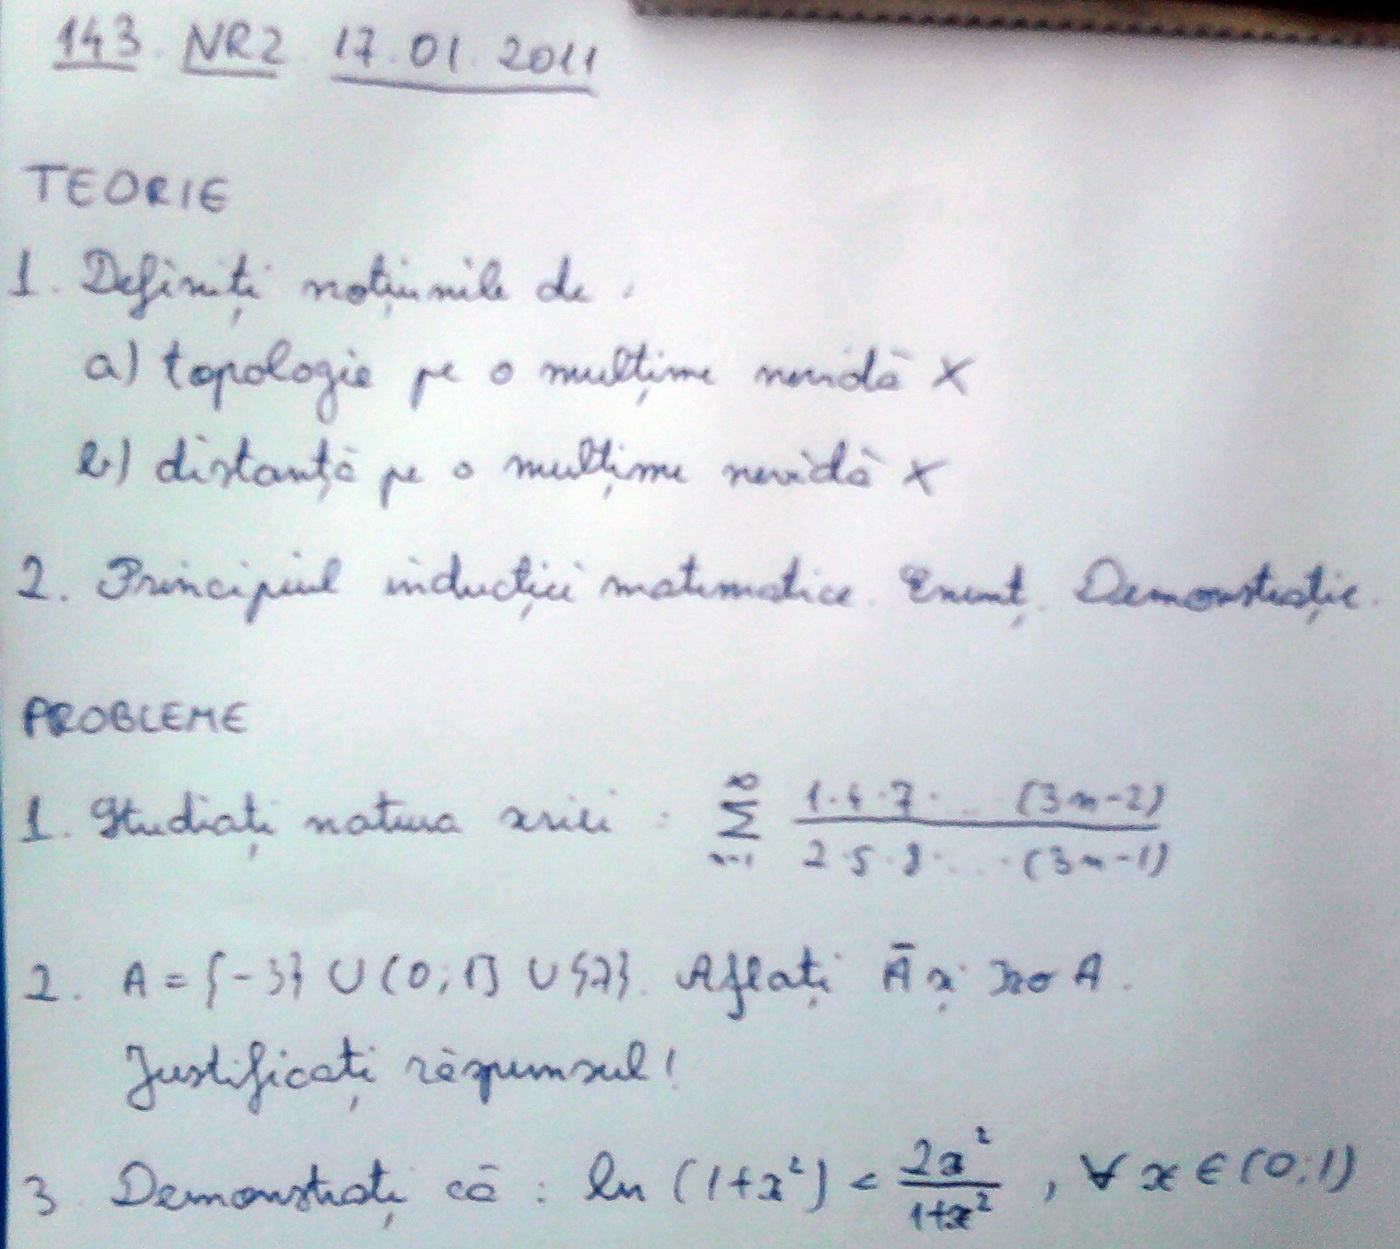 143. NR2 17.01.2011
TEORIE
1. Definiți noțiunile de :
a) topologie pe o mulțime nevidă X
b) distanță pe o mulțime nevidă X
2. Principiul inducției matematice. Enunț. Demonstrație.
PROBLEME
1. Studiați natura seriei : ∑_{n=1}^{∞} \frac{1·4·7·...(3n-2)}{2·5·8·...·(3n-1)}
2. A = {-3} ∪ (0;1] ∪ {7}. Aflați Ā și Izo A.
Justificați răspunsul!
3. Demonstrați că : ln (1+x²) < \frac{2x²}{1+x²} , ∀ x ∈ (0;1)